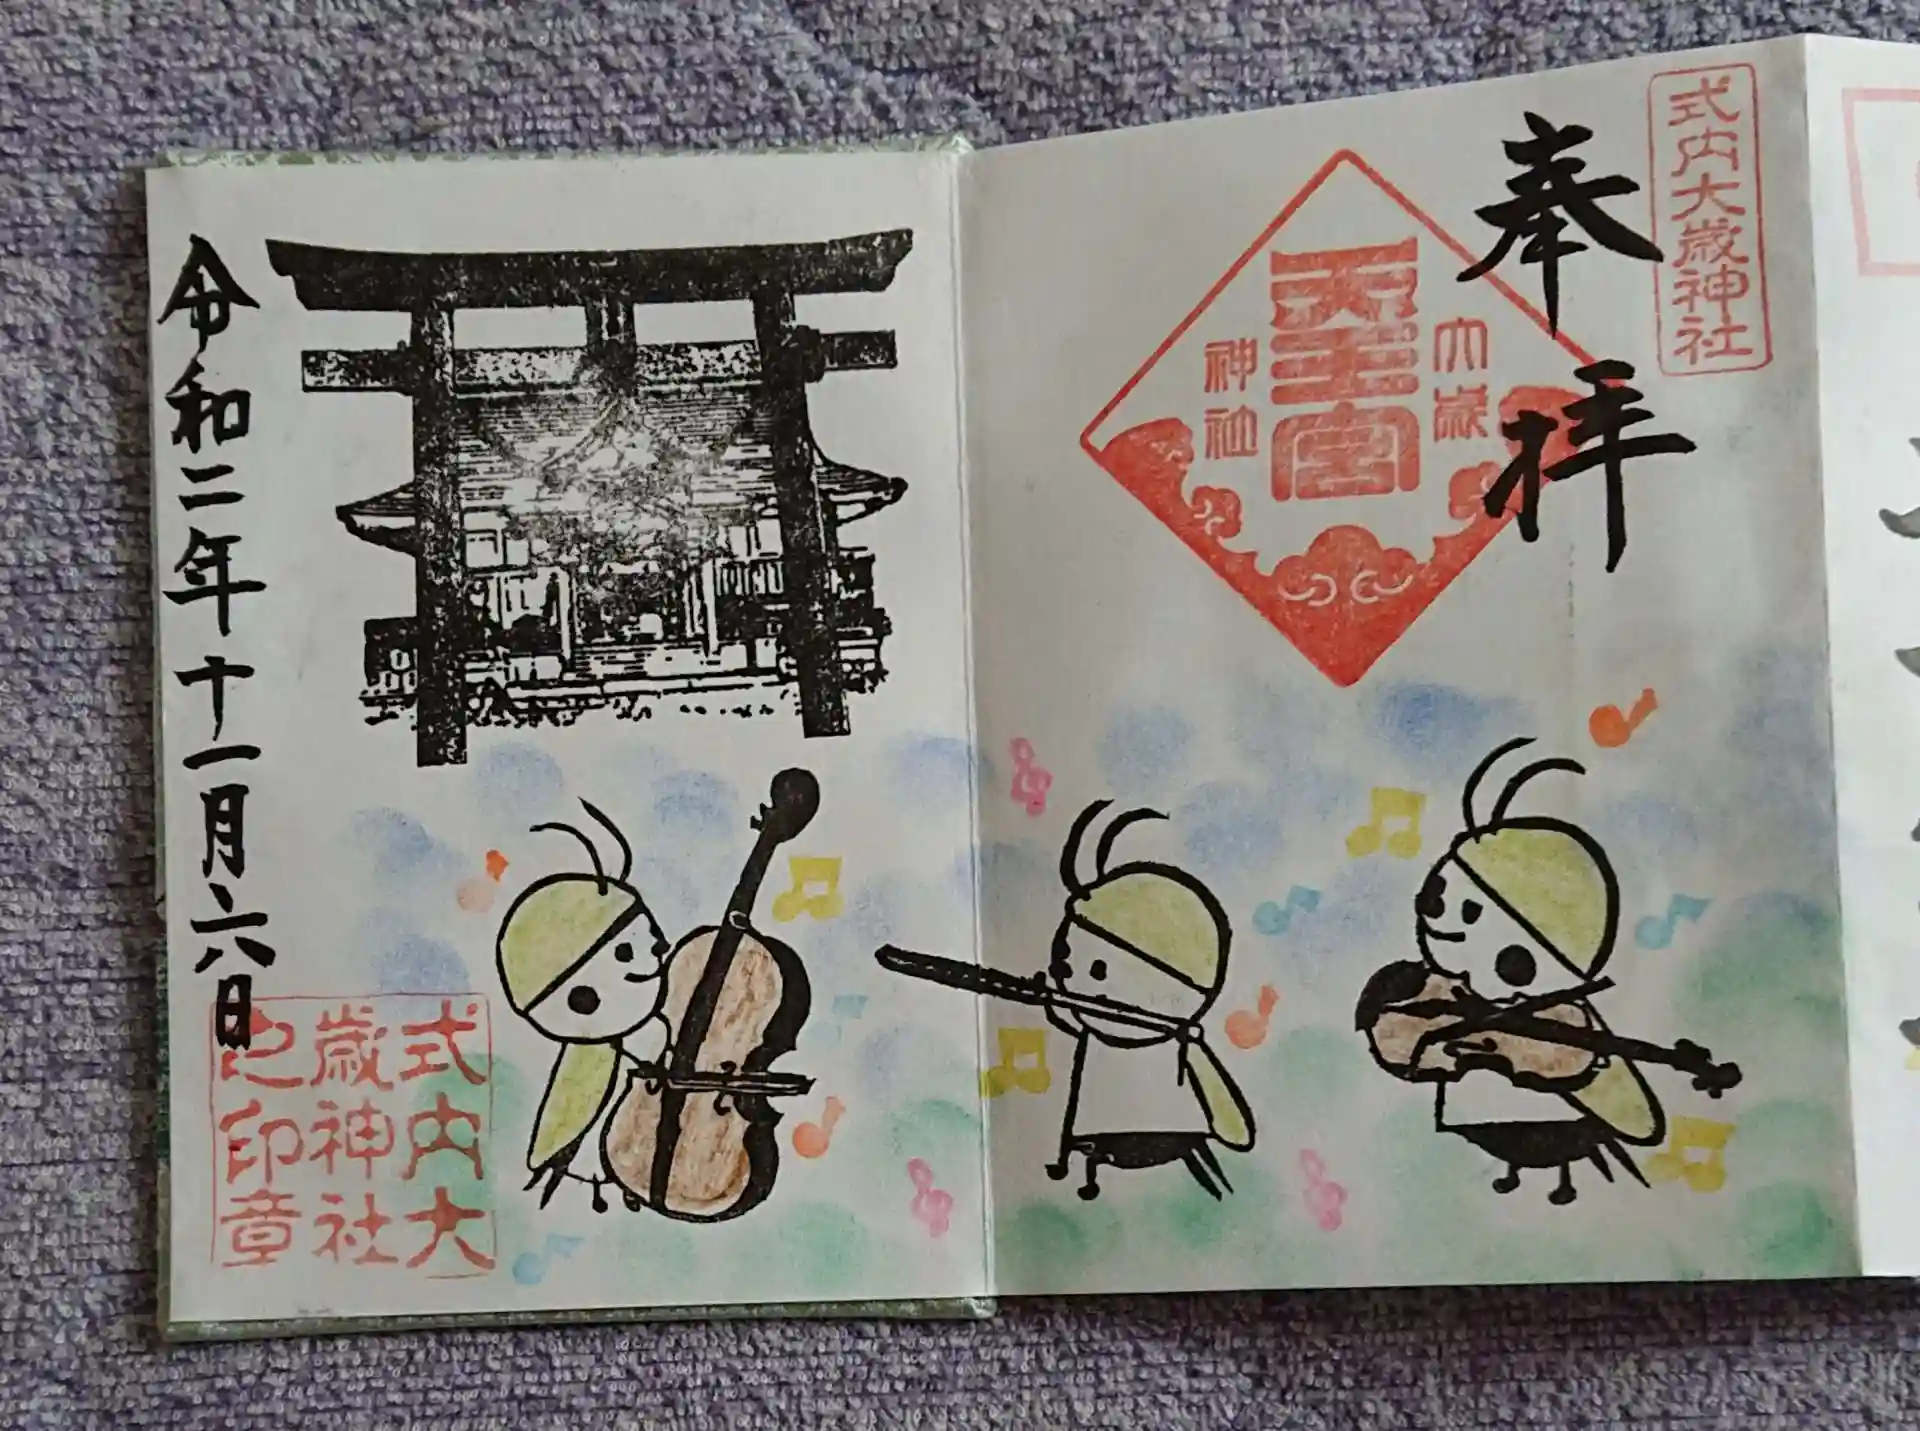 式内大歳神社
奉拝
大歳
天王宮
神社
令和二年十一月二八日
式内大
歳神社
之印章